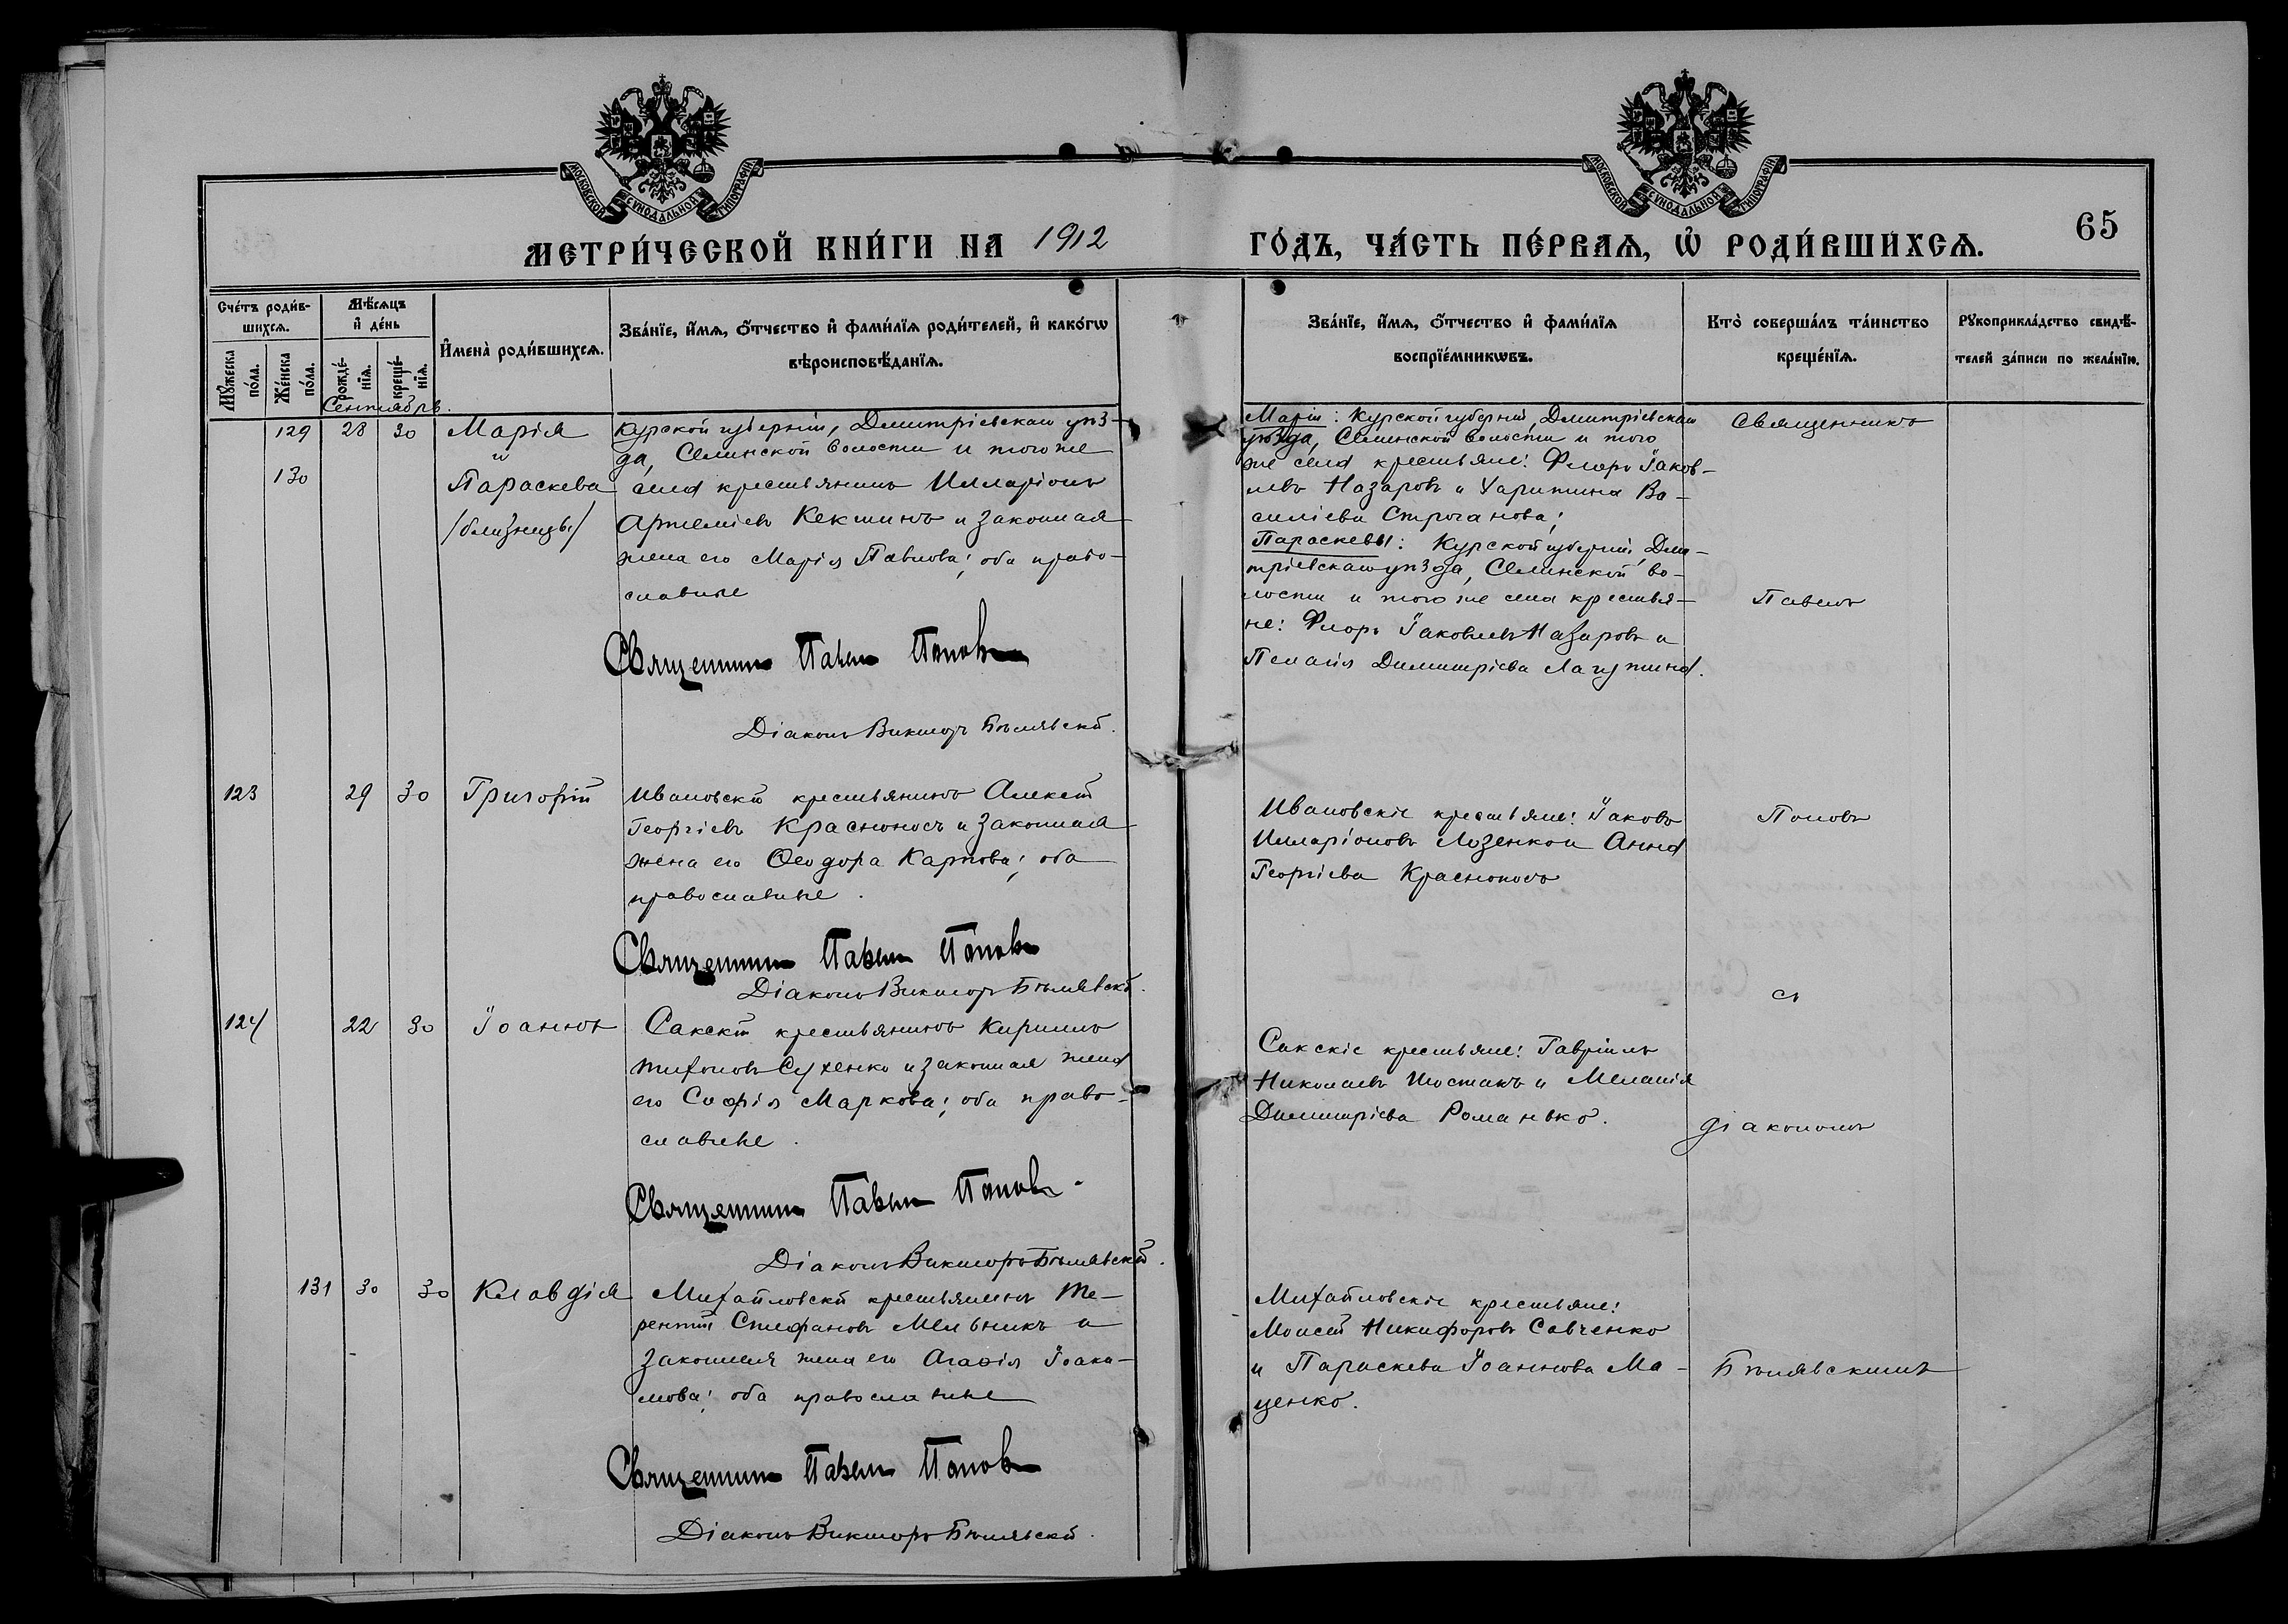 МОСКОВСКОЙ СУНОДАЛЬНОЙ ТИПОГРАФІИ
МОСКОВСКОЙ СУНОДАЛЬНОЙ ТИПОГРАФІИ
МЕТРИ́ЧЕСКОЙ КНИ́ГИ НА 1912
ГО́ДЪ, ЧА́СТЬ ПЕ́РВАѦ, Ѽ РОДИ́ВШИХСѦ.
65
Сче́тъ роди́в-
шихсѧ.
Мꙋ́жеска по́ла.
Же́нска по́ла.
Мѣ́сѧцъ
и҆ де́нь
рожде́-
нїѧ.
креще́-
нїѧ.
И҆мена̀ роди́вшихсѧ.
Зва́нїе, и҆́мѧ, ѻ҆́тчество и҆ фами́лїѧ роди́телей, и҆ како́гѡ
вѣроисповѣ́данїѧ.
Зва́нїе, и҆́мѧ, ѻ҆́тчество и҆ фами́лїѧ
воспрїе́мникѡвъ.
Кто̀ соверша́лъ та́инство
креще́нїѧ.
Рꙋкоприкла́дство свидѣ́-
телей за́писи по жела́нїю.
Сентябрь.
129 28 30 Марія
и
130 Параскева
/близнецы/
Курской губерніи, Дмитріевскаго уѣз-
да, Селинской волости и того же
села крестьянинъ Илларіонъ
Артеміевъ Кекшинъ и законная
жена его Марія Павлова; оба право-
славные
Священникъ Павелъ Поповъ
Діаконъ Викторъ Бѣлявскій.
Маріи: Курской губерніи, Дмитріевскаго
уѣзда, Селинской волости и того
же села крестьяне: Флоръ Іаков-
левъ Назаровъ и Харитина Ва-
силіева Строганова;
Параскевы: Курской губерніи, Дми-
тріевскаго уѣзда, Селинской во-
лости и того же села крестья-
не: Флоръ Іаковлевъ Назаровъ и
Пелагія Димитріева Лагутина.
Священникъ
Павелъ
123 29 30 Григорій
Ивановскій крестьянинъ Алексій
Георгіевъ Красноносъ и законная
жена его Ѳеодора Карпова; оба
православные.
Священникъ Павелъ Поповъ
Діаконъ Викторъ Бѣлявскій.
Ивановскіе крестьяне: Іаковъ
Илларіоновъ Лозенко и Анна
Георгіева Красноносъ
Поповъ
съ
124 22 30 Іоаннъ
Сакскій крестьянинъ Кириллъ
Тихоновъ Сухенко и законная жена
его Софія Маркова; оба право-
славные.
Священникъ Павелъ Поповъ
Діаконъ Викторъ Бѣлявскій.
Сакскіе крестьяне: Гавріилъ
Николаевъ Шостакъ и Меланія
Димитріева Романько.
діакономъ
131 30 30 Клавдія
Михайловскій крестьянинъ Те-
рентій Стефановъ Мельникъ и
законная жена его Агаѳія Іоаки-
мова; оба православные
Священникъ Павелъ Поповъ
Діаконъ Викторъ Бѣлявскій.
Михайловскіе крестьяне:
Моисей Никифоровъ Савченко
и Параскева Іоаннова Ма-
ценко.
Бѣлявскимъ